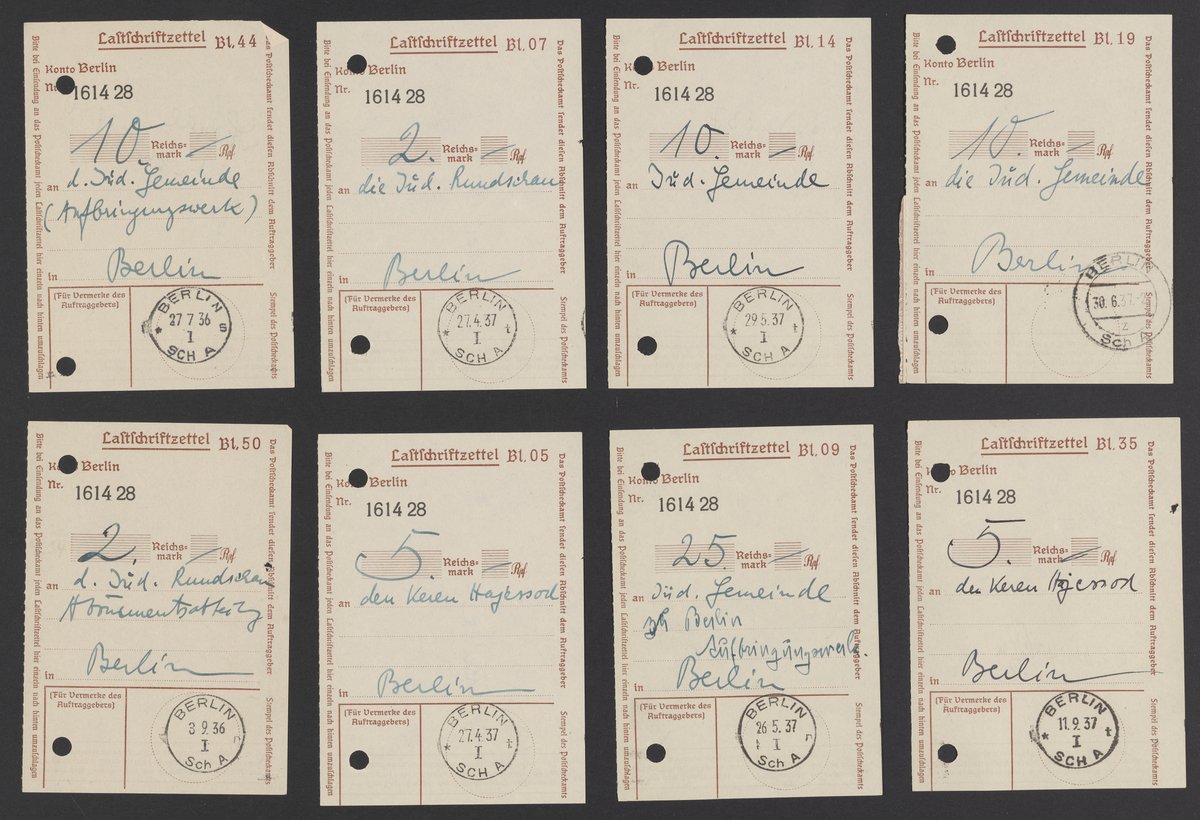 Lastschriftzettel Bl. 44
Konto Berlin
1614 28
10. Reichsmark — Rpf.
an d. Jüd. Gemeinde
(Aufbringungswerk)
in Berlin
(Für Vermerke des Auftraggebers)
BERLIN 27 7 36 I s SCH A
Bitte bei Einsendung an das Postscheckamt jeden Lastschriftzettel hier einzeln nach hinten umzuschlagen
Das Postscheckamt sendet diesen Abschnitt dem Auftraggeber
Stempel des Postscheckamts
Lastschriftzettel Bl. 07
Konto Berlin
Nr. 1614 28
2. Reichsmark — Rpf.
an die Jüd. Rundschau
in Berlin
(Für Vermerke des Auftraggebers)
BERLIN 27.4.37 I t SCH A
Bitte bei Einsendung an das Postscheckamt jeden Lastschriftzettel hier einzeln nach hinten umzuschlagen
Das Postscheckamt sendet diesen Abschnitt dem Auftraggeber
Stempel des Postscheckamts
Lastschriftzettel Bl. 14
Konto Berlin
Nr. 1614 28
10. Reichsmark — Rpf.
an Jüd. Gemeinde
in Berlin
(Für Vermerke des Auftraggebers)
BERLIN 29.5.37 I t SCH A
Bitte bei Einsendung an das Postscheckamt jeden Lastschriftzettel hier einzeln nach hinten umzuschlagen
Das Postscheckamt sendet diesen Abschnitt dem Auftraggeber
Stempel des Postscheckamts
Lastschriftzettel Bl. 19
Konto Berlin
Nr. 1614 28
10. Reichsmark — Rpf.
an die Jüd. Gemeinde
in Berlin
(Für Vermerke des Auftraggebers)
BERLIN 30.6.37 Sch A
Bitte bei Einsendung an das Postscheckamt jeden Lastschriftzettel hier einzeln nach hinten umzuschlagen
Das Postscheckamt sendet diesen Abschnitt dem Auftraggeber
Stempel des Postscheckamts
Lastschriftzettel Bl. 50
Konto Berlin
Nr. 1614 28
2. Reichsmark — Rpf.
an d. Jüd. Rundschau
in Berlin
(Für Vermerke des Auftraggebers)
BERLIN 3 9.36 I r Sch A
Bitte bei Einsendung an das Postscheckamt jeden Lastschriftzettel hier einzeln nach hinten umzuschlagen
Das Postscheckamt sendet diesen Abschnitt dem Auftraggeber
Stempel des Postscheckamts
Lastschriftzettel Bl. 05
Konto Berlin
Nr. 1614 28
5. Reichsmark — Rpf.
an den Keren Hajessod
in Berlin
(Für Vermerke des Auftraggebers)
BERLIN 27.4.37 I t SCH A
Bitte bei Einsendung an das Postscheckamt jeden Lastschriftzettel hier einzeln nach hinten umzuschlagen
Das Postscheckamt sendet diesen Abschnitt dem Auftraggeber
Stempel des Postscheckamts
Lastschriftzettel Bl. 09
Konto Berlin
Nr. 1614 28
25. Reichsmark — Rpf.
an Jüd. Gemeinde
Berlin
Aufbringungswerk.
in Berlin
(Für Vermerke des Auftraggebers)
BERLIN 26 5.37 I r Sch A
Bitte bei Einsendung an das Postscheckamt jeden Lastschriftzettel hier einzeln nach hinten umzuschlagen
Das Postscheckamt sendet diesen Abschnitt dem Auftraggeber
Stempel des Postscheckamts
Lastschriftzettel Bl. 35
Konto Berlin
Nr. 1614 28
5. Reichsmark — Rpf.
an den Keren Hajessod
in Berlin
(Für Vermerke des Auftraggebers)
BERLIN 11.9.37 I t SCH A
Bitte bei Einsendung an das Postscheckamt jeden Lastschriftzettel hier einzeln nach hinten umzuschlagen
Das Postscheckamt sendet diesen Abschnitt dem Auftraggeber
Stempel des Postscheckamts